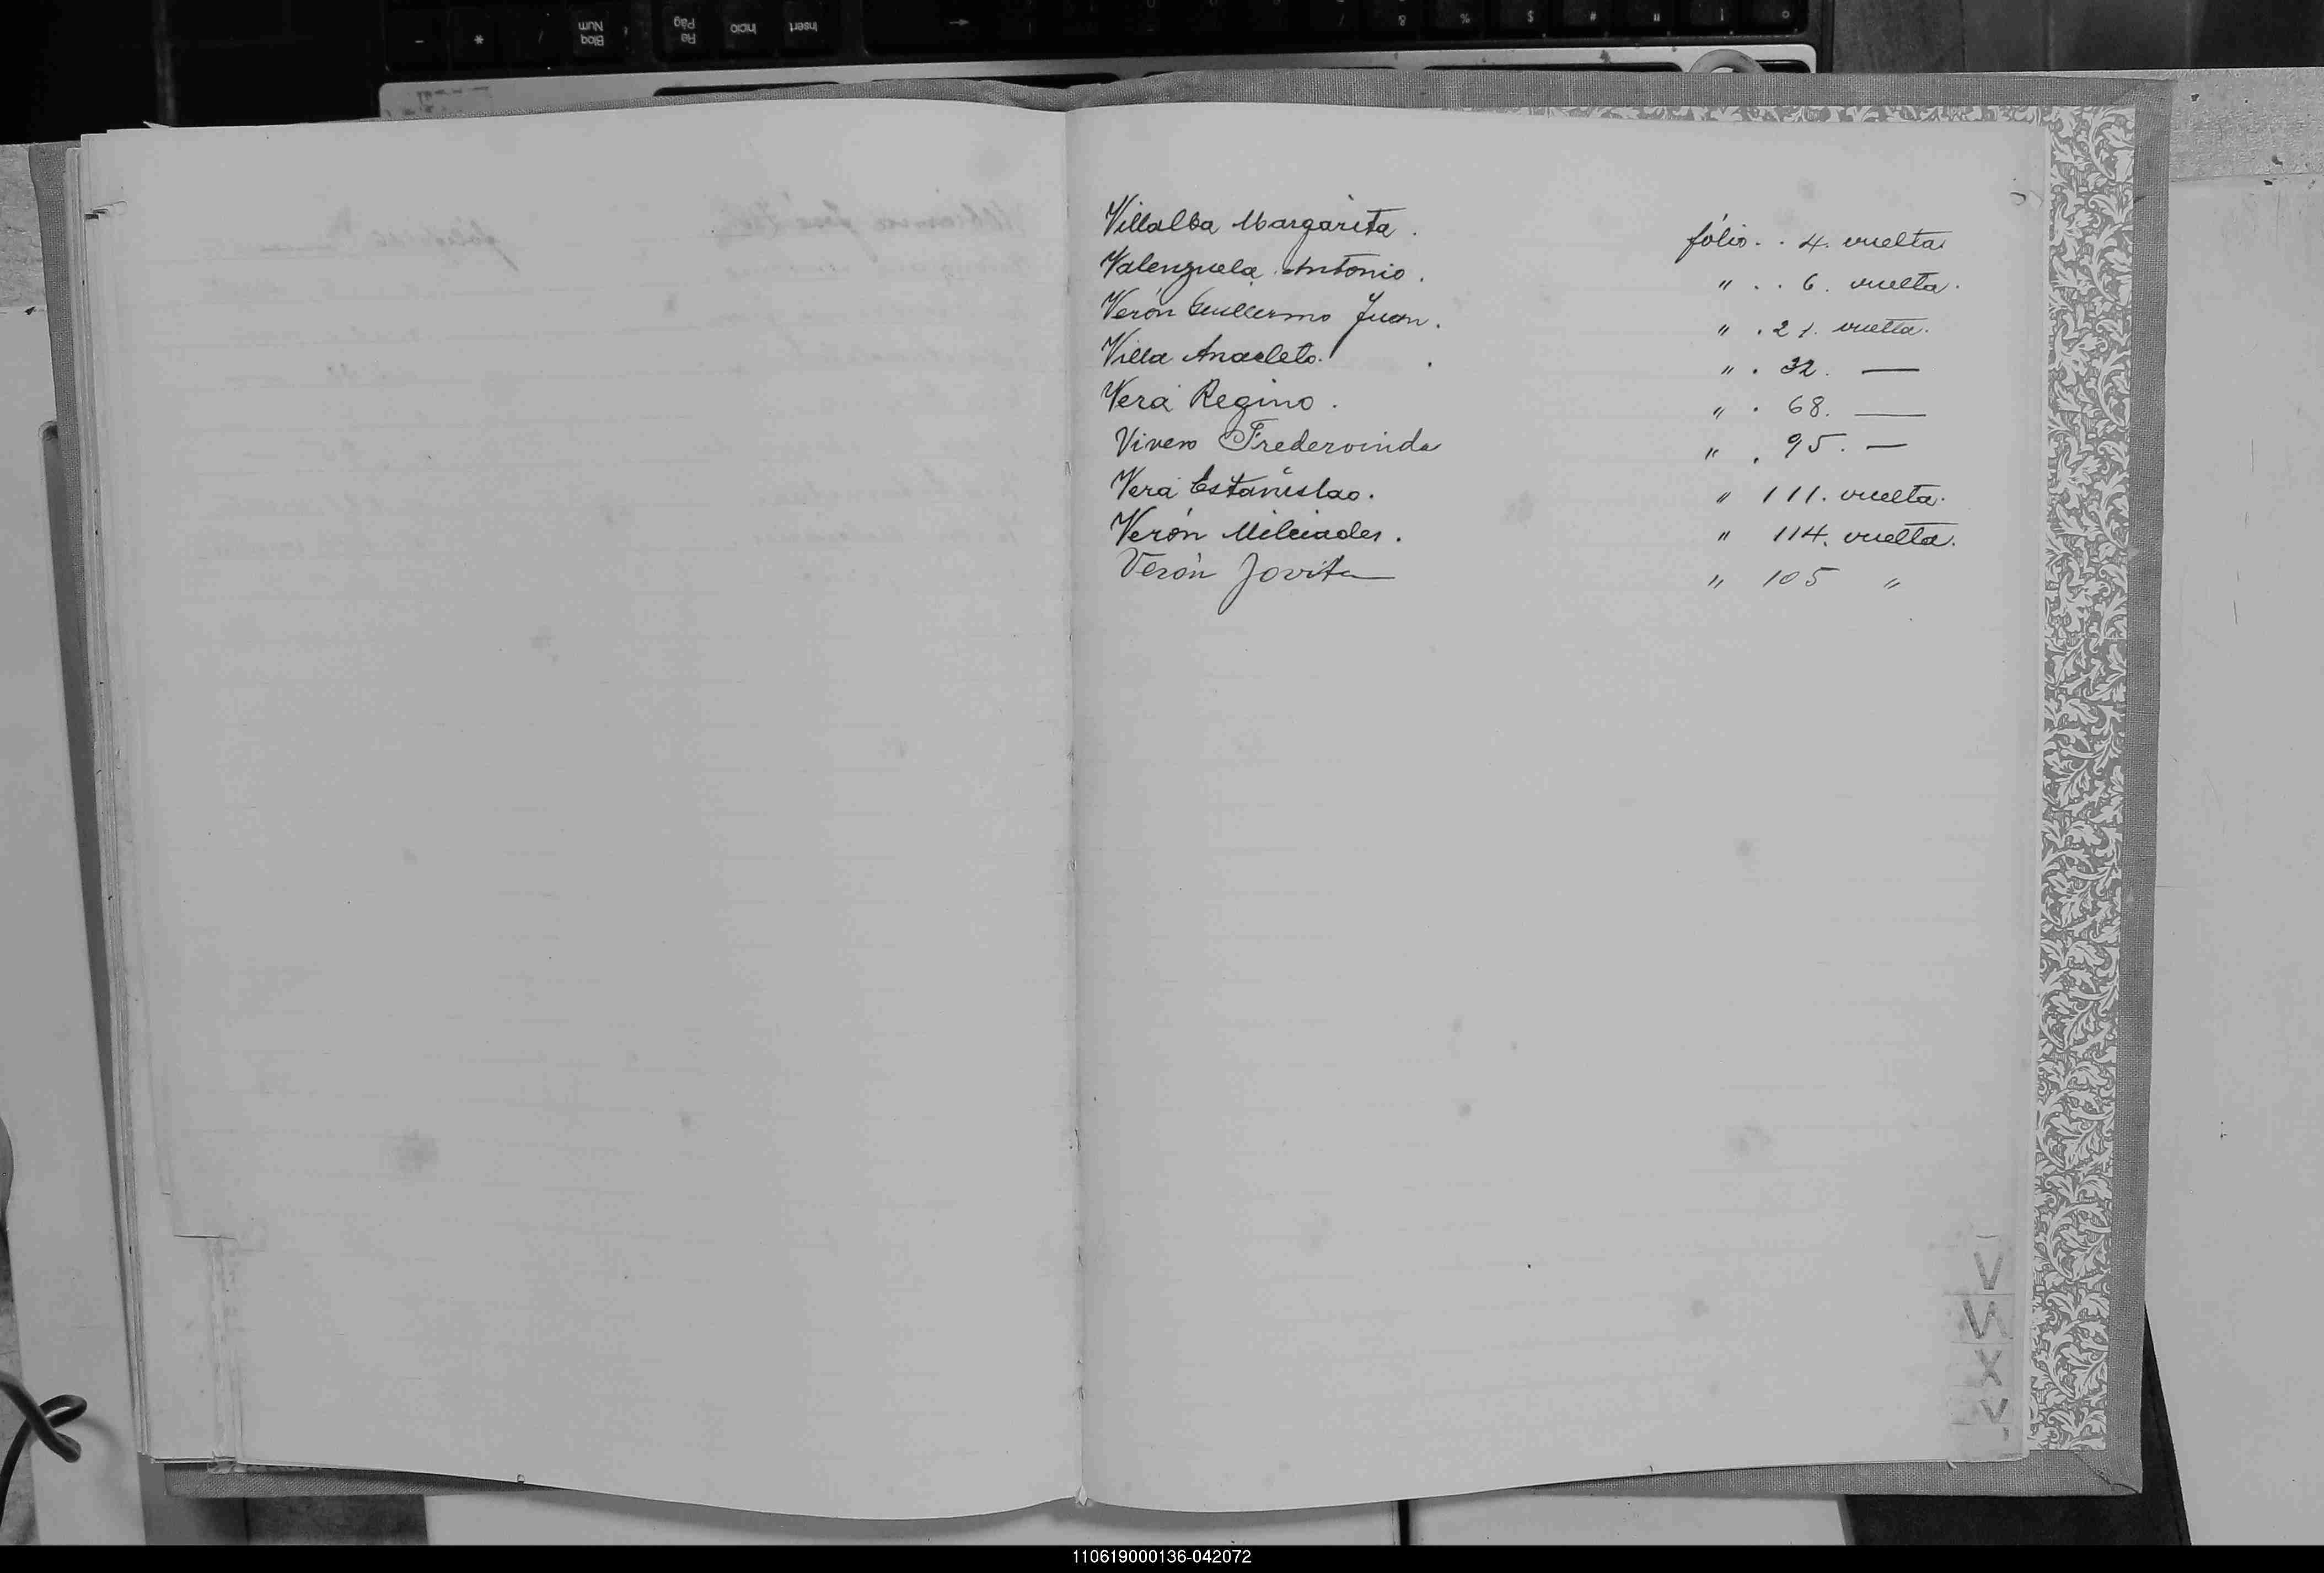 Villalba Margarita . folio. . 4. vuelta
Valenzuela Antonio . " . . 6. vuelta.
Verón Guillermo Juan. " . 21. vuelta.
Villa Anacleto. . " . 32. —
Vera Regino . " . 68. —
Vivero Fredervinda " . 95. —
Vera Estanislao. " 111. vuelta.
Verón Milciades . " 114. vuelta.
Verón Jovita " 105 "
V
W
X
Y
110619000136-042072